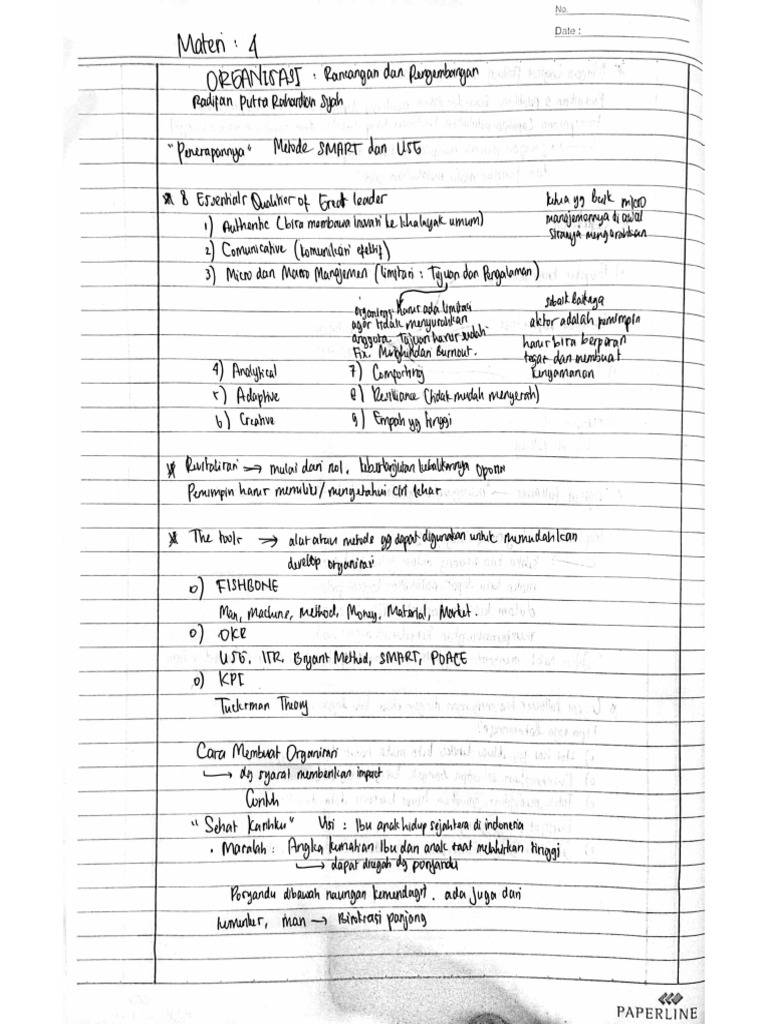 No.
Date :
Materi : 4
ORGANISASI : Rancangan dan Pengembangan
Radifan Putra Rahardian Syah
"Penerapannya" Metode SMART dan USG
* 8 Essentials Qualitier of Great leader
1) Authentic (bisa membawa inovasi ke khalayak umum)
2) Comunicative (komunikasi efektif)
3) Micro dan Macro Manajemen (limitasi : Tujuan dan Pengalaman)
ketua yg baik micro
manajemennya di awal
sisanya mengarahkan
organisasi harus ada limitasi
agar tidak menyusahkan
anggota. Tujuan harus sudah
Fix. Menghindari Burnout.
sebaik baiknya
aktor adalah pemimpin
harus bisa berperan
tegar dan membuat
kenyamanan
4) Analytical
5) Adaptive
6) Creative
7) Comforting
8) Resiliance (tidak mudah menyerah)
9) Empati yg tinggi
* Revitalisasi → mulai dari nol,
Pemimpin harus memiliki/mengetahui ciri khas
* The tools → alat atau metode yg dapat digunakan untuk memudahkan
develop organisasi
o) FISHBONE
Man, Machine, Method, Money, Material, Market.
o) OKR
USG, ITR, Bryant Method, SMART, POACE
o) KPI
Tuckerman Theory
Cara Membuat Organisasi
↳ dg syarat memberikan impact
Contoh
"Sehat Kanhku" Visi : Ibu anak hidup sejahtera di indonesia
• Masalah : Angka kematian Ibu dan anak saat melahirkan tinggi
↳ dapat dicegah dg posyandu
Posyandu dibawah naungan kemendagri. ada juga dari
kemenkes, → Birokrasi panjang
PAPERLINE